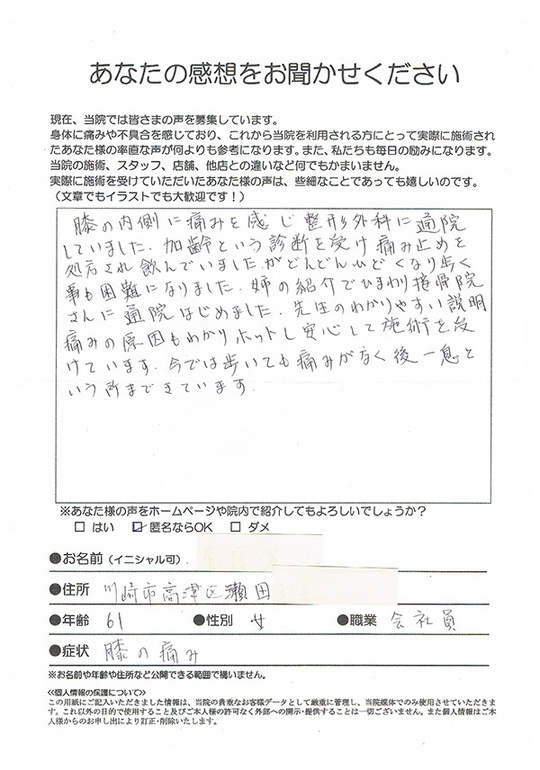 あなたの感想をお聞かせください
現在、当院では皆さまの声を募集しています。
身体に痛みや不具合を感じており、これから当院を利用される方にとって実際に施術され
たあなた様の率直な声が何よりも参考になります。また、私たちも毎日の励みになります。
当院の施術、スタッフ、店舗、他店との違いなど何でもかまいません。
実際に施術を受けていただいたあなた様の声は、些細なことであっても嬉しいのです。
（文章でもイラストでも大歓迎です！）
膝の内側に痛みを感じ整形外科に通院
していました．加齢という診断を受け痛み止めを
処方され飲んでいましたがどんどんひどくなり歩く
事も困難になりました．姉の紹介でひまわり接骨院
さんに通院はじめました．先生のわかりやすい説明
痛みの原因もわかりホットし安心して施術を受
けています．今では歩いても痛みがなく後一息と
いう所まできています．
※あなた様の声をホームページや院内で紹介してもよろしいでしょうか？
□ はい ☑ 匿名ならOK □ ダメ
●お名前（イニシャル可）
●住所 川崎市高津区瀬田
●年齢 61 ●性別 女 ●職業 会社員
●症状 膝の痛み
※お名前や年齢や住所など公開できる範囲で構いません。
≪個人情報の保護について≫
この用紙にご記入いただきました情報は、当院の貴重なお客様データとして厳重に管理し、当院媒体でのみ使用させていただきま
す。これ以外の目的で使用すること及びご本人様の許可なく外部への開示・提供することは一切ございません。また個人情報はご本
人様からのお申し出により訂正・削除いたします。